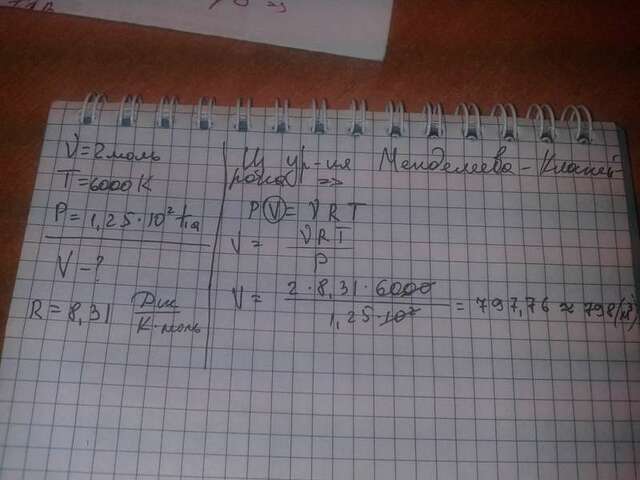 ν=2 моль
T=6000 K
P=1,25·10² Па
V-?
R=8,31 Дж/К·моль
Из ур-ия Менделеева-Клапей-
рона =>
PV=νRT
V = νRT/P
V = 2·8,31·6000/1,25·10² = 797,76 ≈ 798(м³)